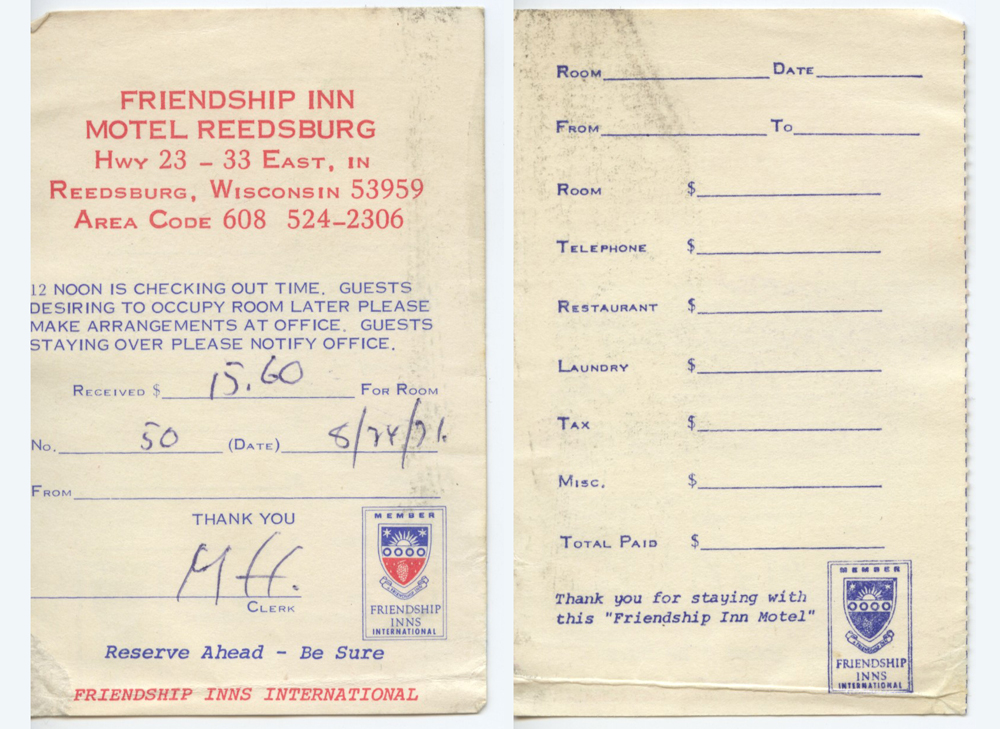 FRIENDSHIP INN
MOTEL REEDSBURG
HWY 23 – 33 EAST, IN
REEDSBURG, WISCONSIN 53959
AREA CODE 608 524–2306
12 NOON IS CHECKING OUT TIME. GUESTS
DESIRING TO OCCUPY ROOM LATER PLEASE
MAKE ARRANGEMENTS AT OFFICE. GUESTS
STAYING OVER PLEASE NOTIFY OFFICE.
RECEIVED $ 15.60 FOR ROOM
No. 50 (DATE) 8/24/71.
FROM
THANK YOU
CLERK
MEMBER
FRIENDSHIP
INNS
INTERNATIONAL
Reserve Ahead – Be Sure
FRIENDSHIP INNS INTERNATIONAL
ROOM DATE
FROM TO
ROOM $
TELEPHONE $
RESTAURANT $
LAUNDRY $
TAX $
MISC. $
TOTAL PAID $
Thank you for staying with
this "Friendship Inn Motel"
MEMBER
FRIENDSHIP
INNS
INTERNATIONAL